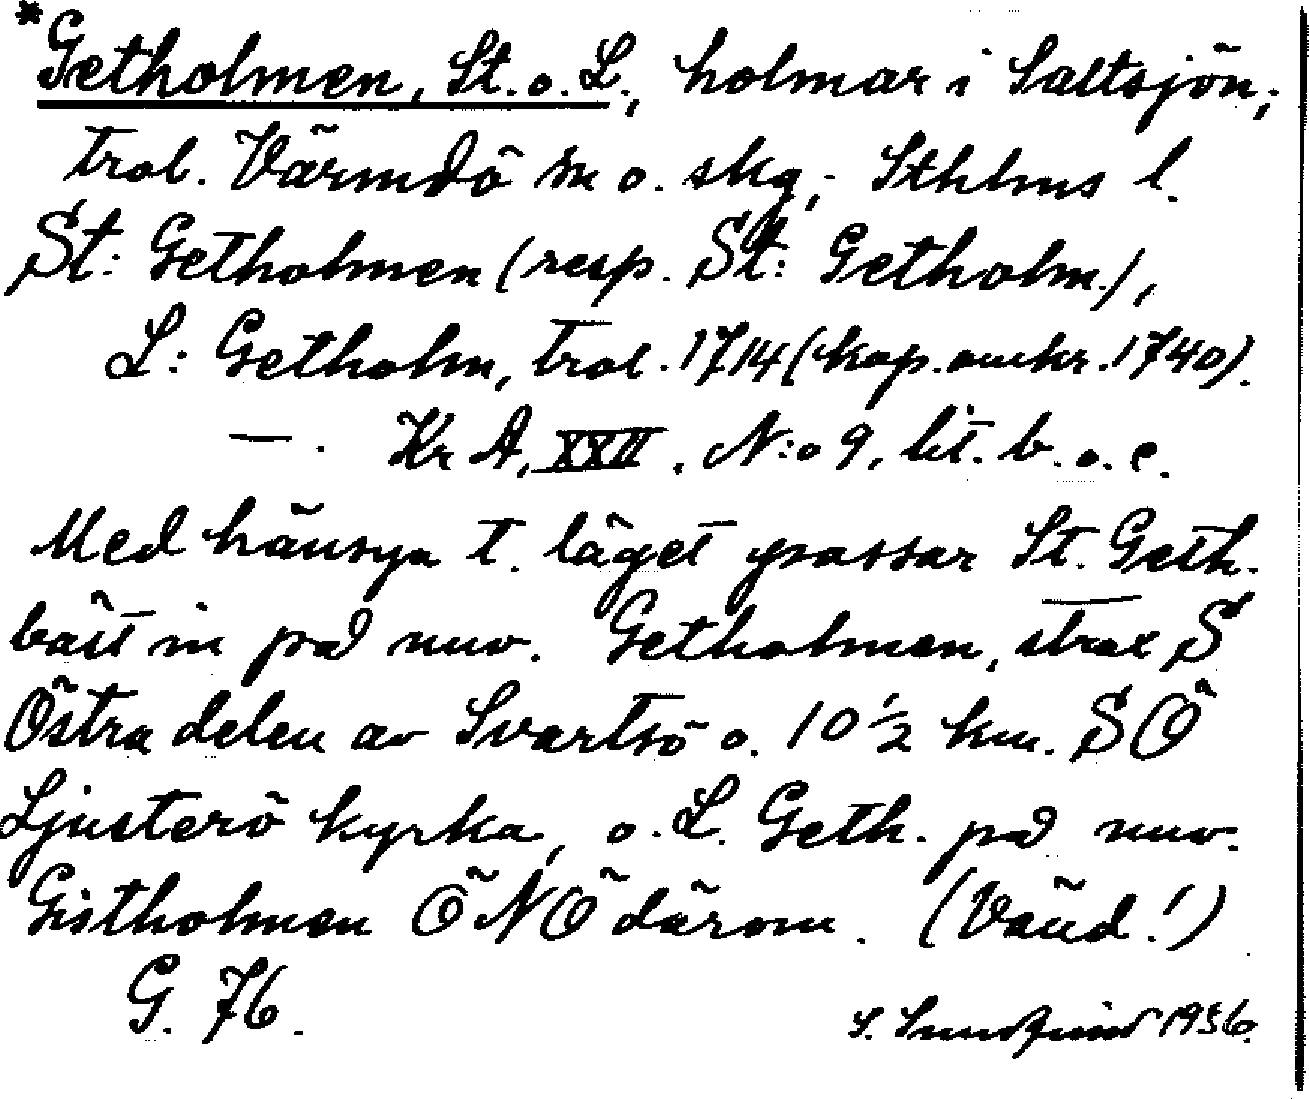 *Getholmen, St. o. L., holmar i Saltsjön,
trol. Värmdö sn o. skg, Sthlms l.
St: Getholmen (resp. St: Getholm.),
L: Getholm, trol. 1714 (kop. omkr. 1740).
—. KrA, XXII, N:o 9, lit. b. o. c.
Med hänsyn t. läget passar St. Geth.
bäst in på nuv. Getholmen, strax S
Östra delen av Svartsö o. 10 ½ km. SÖ
Ljusterö kyrka, o. L. Geth. på nuv.
Gistholmen ÖNÖ därom. (Vänd!)
G. 76.
1936.